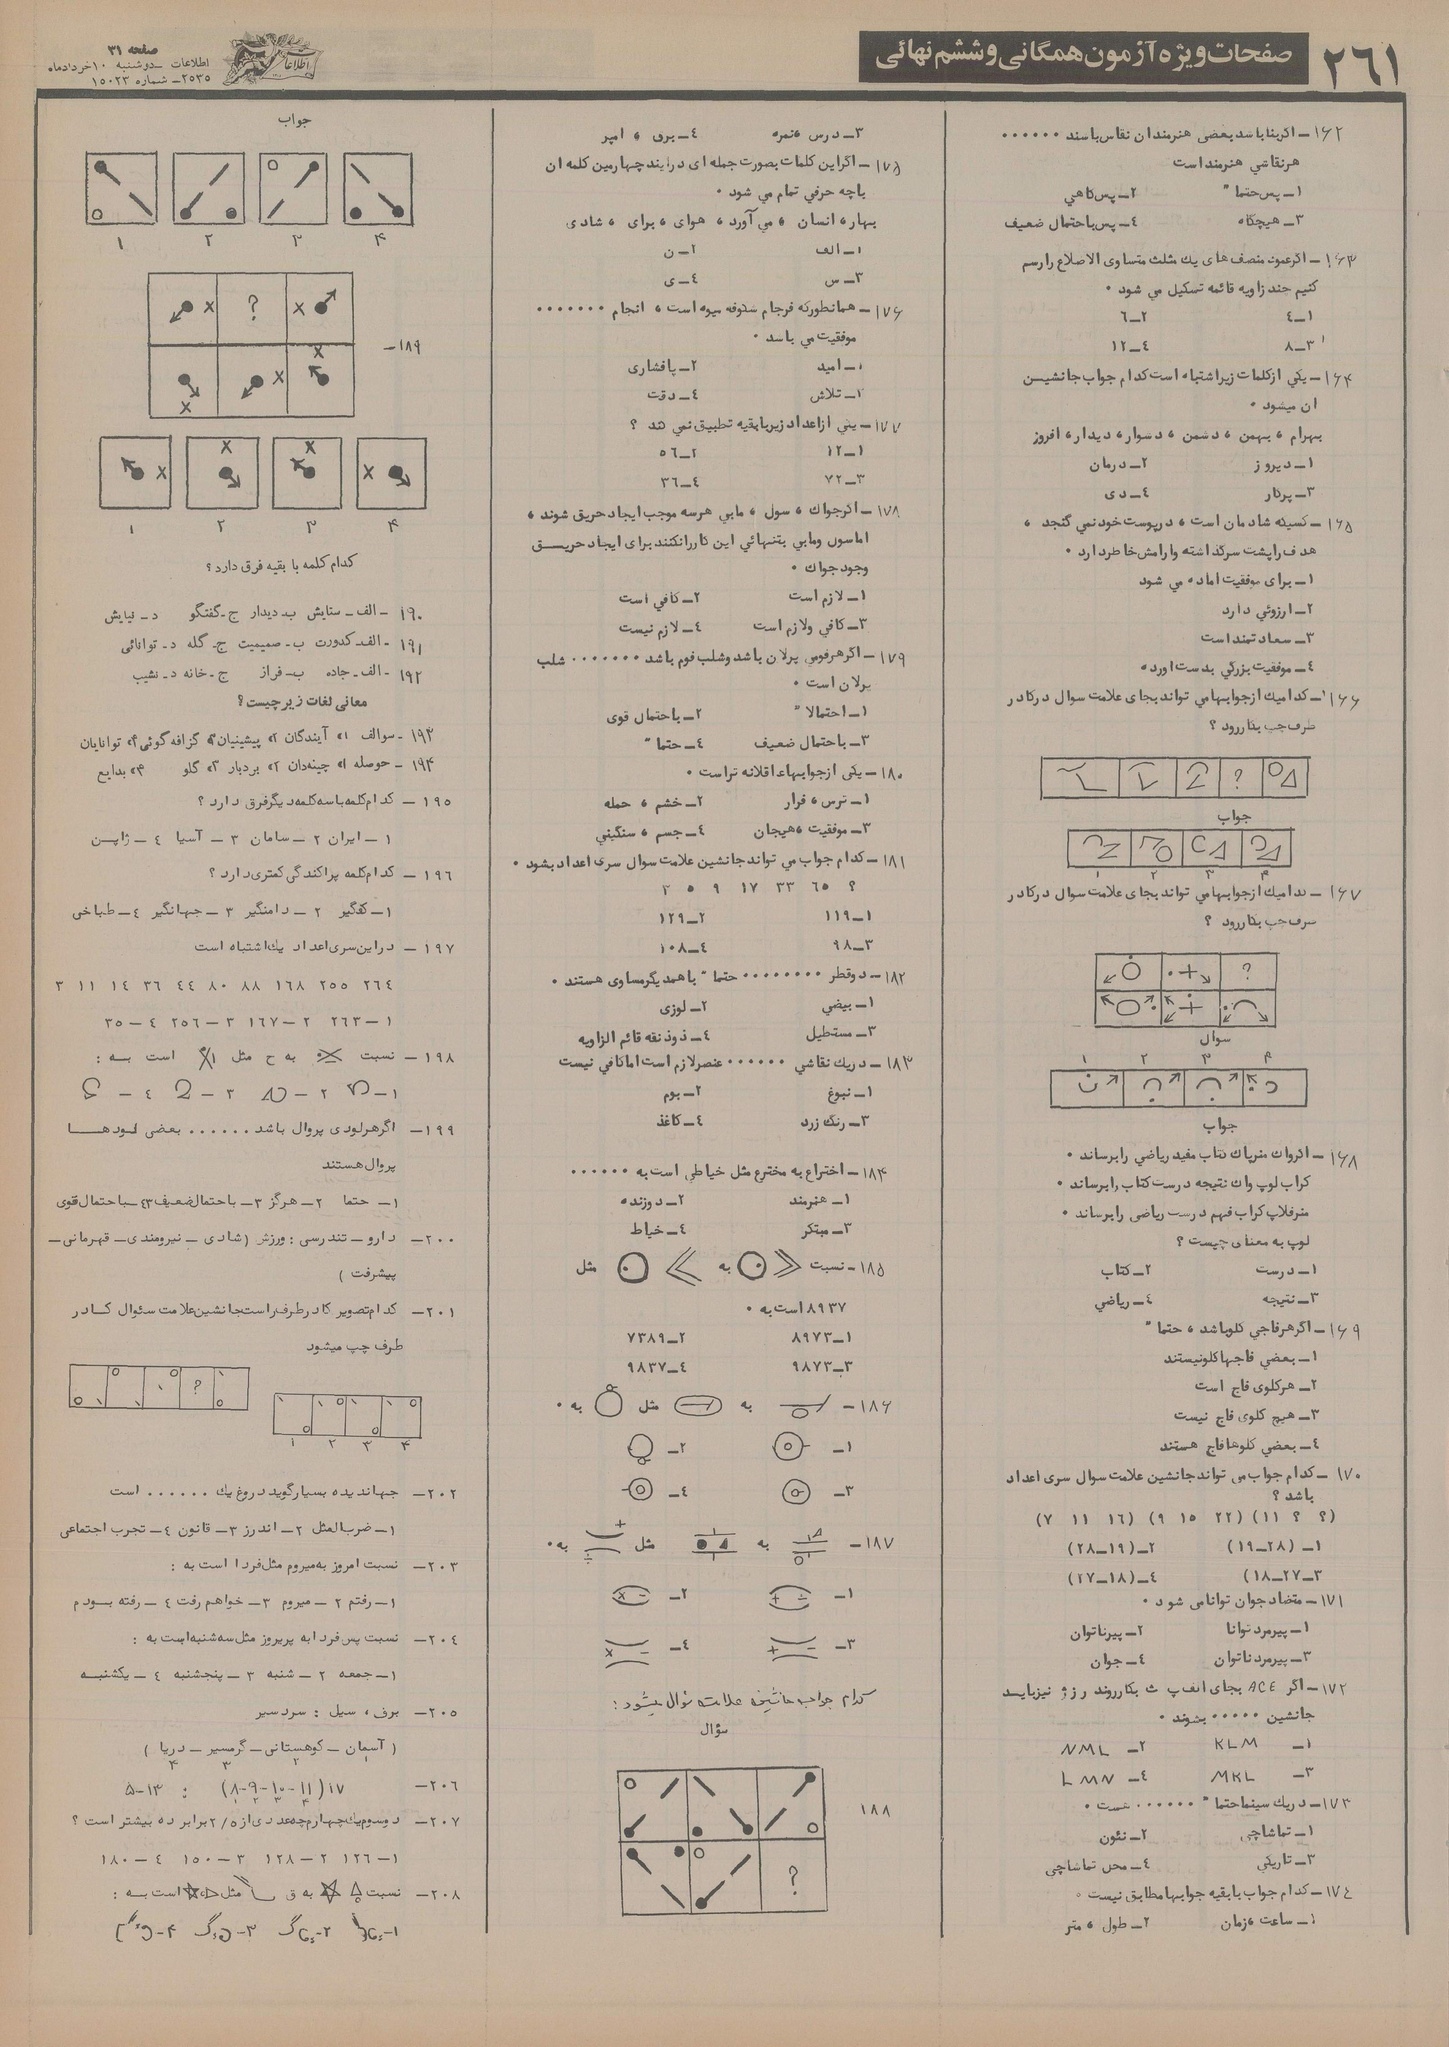 ۲۶۱
صفحات ویژه آزمون همگانی و ششم نهائی
صفحه ۳۱
اطلاعات ـ دوشنبه ۱۰ خردادماه
۲۵۳۵ ـ شماره ۱۵۰۲۳
۱۶۲ ـ اگر بنا باشد بعضی هنرمندان نقاش باشند ......
هر نقاشی هنرمند است
۱ ـ پس حتما" ۲ ـ پس گاهی
۳ ـ هیچگاه ٤ ـ پس با احتمال ضعیف
۱۶۳ ـ اگر عمود منصف های یك مثلث متساوی الاضلاع را رسم
کنیم چند زاویه قائمه تشکیل می شود .
۱ ـ ٤ ۲ ـ ٦
۳ ـ ۸ ٤ ـ ۱۲
۱۶۴ ـ یکی از کلمات زیر اشتباه است کدام جواب جانشین
آن میشود .
بهرام ، بهمن ، دشمن ، دشوار ، دیدار ، افروز
۱ ـ دیروز ۲ ـ درمان
۳ ـ پرگار ٤ ـ دی
۱۶۵ ـ کسیکه شادمان است ، در پوست خود نمی گنجد ،
هدف را پشت سر گذاشته و آرامش خاطر دارد .
۱ ـ برای موفقیت آماده می شود
۲ ـ آرزوئی دارد
۳ ـ سعادتمند است
٤ ـ موفقیت بزرگی بدست آورده
۱۶۶ ـ کدامیك از جوابها می تواند بجای علامت سوال در کادر
طرف چپ بکار رود ؟
?
جواب
۱ ۲ ۳ ۴
۱۶۷ ـ کدامیك از جوابها می تواند بجای علامت سوال در کادر
طرف چپ بکار رود ؟
?
سوال
۱ ۲ ۳ ۴
جواب
۱۶۸ ـ اگر واك منرپاك کتاب مفید ریاضی را برساند .
کراب لوپ واك نتیجه درست کتاب را برساند .
منرفلاپ کراب فهم درست ریاضی را برساند .
لوپ به معنای چیست ؟
۱ ـ درست ۲ ـ کتاب
۳ ـ نتیجه ٤ ـ ریاضی
۱۶۹ ـ اگر هر فاجی کلو باشد ، حتما"
۱ ـ بعضی فاجها کلو نیستند
۲ ـ هر کلوی فاج است
۳ ـ هیچ کلوی فاج نیست
٤ ـ بعضی کلوها فاج هستند
۱۷۰ ـ کدام جواب می تواند جانشین علامت سوال سری اعداد
باشد ؟
(؟ ؟ ۱۱) (۲۲ ۱۵ ۹) (۱۶ ۱۱ ۷)
۱ ـ (۲۸ـ۱۹) ۲ ـ (۱۹ـ۲۸)
۳ ـ ۲۷ـ۱۸) ٤ ـ (۱۸ـ۲۷)
۱۷۱ ـ متضاد جوان توانا می شود .
۱ ـ پیرمرد توانا ۲ ـ پیر ناتوان
۳ ـ پیرمرد ناتوان ٤ ـ جوان
۱۷۲ ـ اگر ACE بجای الف پ ث بکار روند ر ز ژ نیز باید
جانشین ..... بشوند .
۱ ـ KLM ۲ ـ NML
۳ ـ MKL ٤ ـ LMN
۱۷۳ ـ در یك سینما حتما" ...... هست .
۱ ـ تماشاچی ۲ ـ نئون
۳ ـ تاریکی ٤ ـ محل تماشاچی
۱۷٤ ـ کدام جواب با بقیه جوابها مطابق نیست .
۱ ـ ساعت ، زمان ۲ ـ طول ، متر
۳ ـ درس ، نمره ٤ ـ برق ، آمپر
۱۷۵ ـ اگر این کلمات بصورت جمله ای درآیند چهارمین کلمه آن
با چه حرفی تمام می شود .
بهار ، انسان ، می آورد ، هوای ، برای ، شادی
۱ ـ الف ۲ ـ ن
۳ ـ س ٤ ـ ی
۱۷۶ ـ همانطور که فرجام شکوفه میوه است ، انجام .......
موفقیت می باشد .
۱ ـ امید ۲ ـ پافشاری
۳ ـ تلاش ٤ ـ دقت
۱۷۷ ـ یکی از اعداد زیر با بقیه تطبیق نمی کند ؟
۱ ـ ۱۲ ۲ ـ ۵۶
۳ ـ ۷۲ ٤ ـ ۳۶
۱۷۸ ـ اگر جواك ، سول ، مابی هر سه موجب ایجاد حریق شوند ،
اما سول و مابی بتنهائی این کار را نکنند برای ایجاد حریق
وجود جواك .
۱ ـ لازم است ۲ ـ کافی است
۳ ـ کافی و لازم است ٤ ـ لازم نیست
۱۷۹ ـ اگر هر فومی پرلان باشد و شلب فوم باشد ....... شلب
پرلان است .
۱ ـ احتمالا" ۲ ـ با احتمال قوی
۳ ـ با احتمال ضعیف ٤ ـ حتما"
۱۸۰ ـ یکی از جوابها عاقلانه تر است .
۱ ـ ترس ، فرار ۲ ـ خشم ، حمله
۳ ـ موفقیت ، هیجان ٤ ـ جسم ، سنگینی
۱۸۱ ـ کدام جواب می تواند جانشین علامت سوال سری اعداد بشود .
؟ ٦۵ ۳۳ ۱۷ ۹ ۵ ۳
۱ ـ ۱۱۹ ۲ ـ ۱۲۹
۳ ـ ۹۸ ٤ ـ ۱۰۸
۱۸۲ ـ دو قطر ........ حتما" با همدیگر مساوی هستند .
۱ ـ بیضی ۲ ـ لوزی
۳ ـ مستطیل ٤ ـ ذوذنقه قائم الزاویه
۱۸۳ ـ در یك نقاشی ...... عنصر لازم است اما کافی نیست
۱ ـ نبوغ ۲ ـ بوم
۳ ـ رنگ زرد ٤ ـ کاغذ
۱۸۴ ـ اختراع به مخترع مثل خیاطی است به ......
۱ ـ هنرمند ۲ ـ دوزنده
۳ ـ مبتکر ٤ ـ خیاط
۱۸۵ ـ نسبت به مثل
۸۹۳۷ است به .
۱ ـ ۸۹۷۳ ۲ ـ ۷۳۸۹
۳ ـ ۹۸۷۳ ٤ ـ ۹۸۳۷
۱۸۶ ـ به مثل به .
۱ ـ ۲ ـ
۳ ـ ٤ ـ
۱۸۷ ـ به مثل به .
۱ ـ ۲ ـ
۳ ـ ٤ ـ
کدام جواب جانشین علامت سؤال میشود :
سؤال
۱۸۸
?
جواب
۱ ۲ ۳ ۴
۱۸۹ ـ
?
۱ ۲ ۳ ۴
کدام کلمه با بقیه فرق دارد ؟
۱۹۰ ـ الف ـ ستایش ب ـ دیدار ج ـ گفتگو د ـ نیایش
۱۹۱ ـ الف ـ کدورت ب ـ صمیمیت ج ـ گله د ـ توانائی
۱۹۲ ـ الف ـ جاده ب ـ فراز ج ـ خانه د ـ نشیب
معانی لغات زیر چیست ؟
۱۹۳ ـ سوالف ۱» آیندگان ۲» پیشینیان ۳» گزافه گوئی ۴» توانایان
۱۹۴ ـ حوصله ۱» چینه دان ۲» بردبار ۳» گلو ۴» بدایع
۱۹۵ ـ کدام کلمه با سه کلمه دیگر فرق دارد ؟
۱ ـ ایران ۲ ـ سامان ۳ ـ آسیا ٤ ـ ژاپن
۱۹٦ ـ کدام کلمه پراکندگی کمتری دارد ؟
۱ ـ کفگیر ۲ ـ دامنگیر ۳ ـ جهانگیر ٤ ـ طباخی
۱۹۷ ـ در این سری اعداد یك اشتباه است
۲٦٤ ۲۵۵ ۱٦۸ ۸۸ ۸۰ ٤٤ ۳٦ ۱٤ ۱۱ ۳
۱ ـ ۲٦۳ ۲ ـ ۱٦۷ ۳ ـ ۲۵٦ ٤ ـ ۳۵
۱۹۸ ـ نسبت به ح مثل است به :
۱ ـ ۲ ـ ۳ ـ ٤ ـ
۱۹۹ ـ اگر هر لودی پروال باشد ...... بعضی لودها
پروال هستند
۱ ـ حتما ۲ ـ هرگز ۳ ـ با احتمال ضعیف ٤ـ با احتمال قوی
۲۰۰ ـ دارو ـ تندرستی : ورزش (شادی ـ نیرومندی ـ قهرمانی ـ
پیشرفت )
۲۰۱ ـ کدام تصویر کادر طرف راست جانشین علامت سئوال کادر
طرف چپ میشود
?
۱ ۲ ۳ ۴
۲۰۲ ـ جهاندیده بسیار گوید دروغ یك ...... است
۱ ـ ضرب المثل ۲ ـ اندرز ۳ ـ قانون ٤ ـ تجرب اجتماعی
۲۰۳ ـ نسبت امروز به میروم مثل فردا است به :
۱ ـ رفتم ۲ ـ میروم ۳ ـ خواهم رفت ٤ ـ رفته بودم
۲۰٤ ـ نسبت پس فردا به پریروز مثل سه شنبه است به :
۱ ـ جمعه ۲ ـ شنبه ۳ ـ پنجشنبه ٤ ـ یکشنبه
۲۰۵ ـ برف ، سیل : سردسیر
( آسمان ـ کوهستانی ـ گرمسیر ـ دریا )
۱ ۲ ۳ ۴
۲۰٦ ـ ۱۷ (۸-۹-۱۰-۱۱) : ۵-۱۳
۱ ۲ ۳ ۴
۲۰۷ ـ دو سوم یك چهارم چه عددی از ۲/۵ برابر ده بیشتر است ؟
۱ ـ ۱۲٦ ۲ ـ ۱۲۸ ۳ ـ ۱۵۰ ٤ ـ ۱۸۰
۲۰۸ ـ نسبت به ق مثل است به :
۱ ـ ۲ ـ ۳ ـ ۴ ـ